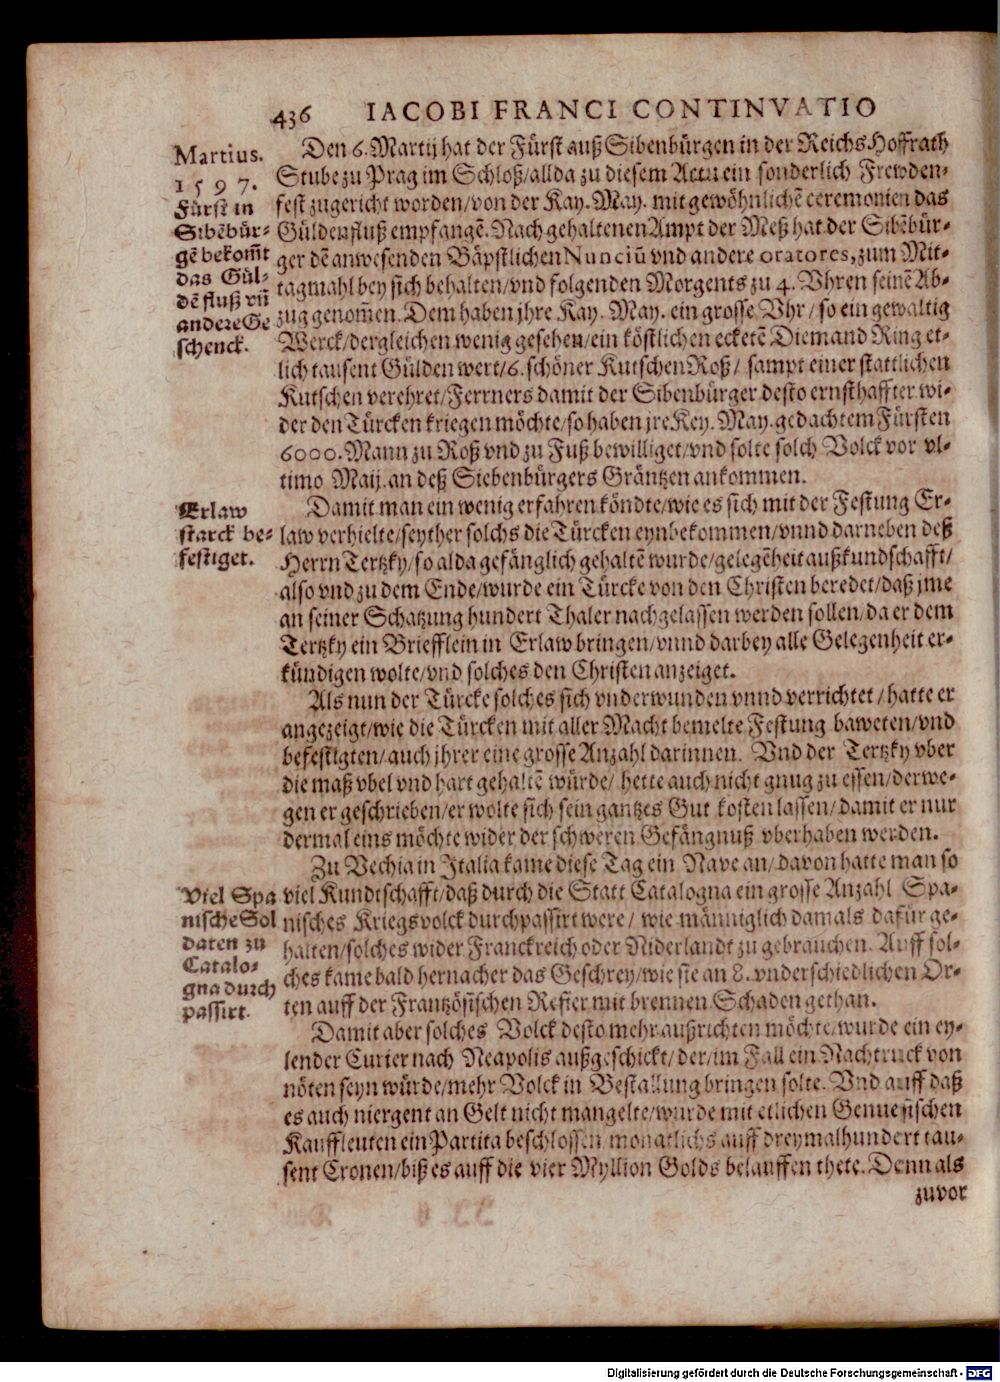 436 IACOBI FRANCI CONTINVATIO
Martius.
1597.
Fürst in
Sibẽbür-
gẽ bekom̃t
das Gül-
dẽ fluß vñ
andere Ge
schenck.
Den 6. Martij hat der Fürst auß Sibenbürgen in der Reichs Hoffrath
Stube zu Prag im Schloß/ allda zu diesem Actu ein sonderlich Frewden-
fest zugericht worden/ von der Kay. May. mit gewöhnlichẽ ceremonien das
Güldenfluß empfangẽ. Nach gehaltenen Ampt der Meß hat der Sibẽbür-
ger dẽ anwesenden Bäpstlichen Nunciũ vnd andere oratores, zum Mit-
tagmahl bey sich behalten/ vnd folgenden Morgents zu 4. Vhren seinẽ Ab-
zug genom̃en. Dem haben jhre Kay. May. ein grosse Vhr/ so ein gewaltig
Werck/ dergleichen wenig gesehen/ ein köstlichen ecketẽ Diemand Ring et-
lich tausent Gülden wert/ 6. schöner Kutschen Roß/ sampt einer stattlichen
Kutschen verehret/ Ferrners damit der Sibenbürger desto ernsthaffter wi-
der den Türcken kriegen möchte/ so haben jre Key. May. gedachtem Fürsten
6000. Mann zu Roß vnd zu Fuß bewilliget/ vnd solte solch Volck vor vl-
timo Maij. an deß Siebenbürgers Gräntzen ankommen.
Erlaw
starck be-
festiget.
Damit man ein wenig erfahren köndte/ wie es sich mit der Festung Er-
law verhielte/ seyther solchs die Türcken eynbekommen/ vnnd darneben deß
Herrn Tertzky/ so alda gefänglich gehaltẽ wurde/ gelegẽheit außkundschafft/
also vnd zu dem Ende/ wurde ein Türcke von den Christen beredet/ daß jme
an seiner Schatzung hundert Thaler nachgelassen werden sollen/ da er dem
Tertzky ein Briefflein in Erlaw bringen/ vnnd darbey alle Gelegenheit er-
kündigen wolte/ vnd solches den Christen anzeiget.
Als nun der Türcke solches sich vnderwunden vnnd verrichtet/ hatte er
angezeigt/ wie die Türcken mit aller Macht bemelte Festung baweten/ vnd
befestigten/ auch jhrer eine grosse Anzahl darinnen. Vnd der Tertzky vber
die maß vbel vnd hart gehaltẽ würde/ hette auch nicht gnug zu essen/ derwe-
gen er geschrieben/ er wolte sich sein gantzes Gut kosten lassen/ damit er nur
dermal eins möchte wider der schweren Gefängnuß vberhaben werden.
Viel Spa
nische Sol
daten zu
Catalo-
gna durch
passirt.
Zu Vechia in Italia kame diese Tag ein Nave an/ davon hatte man so
viel Kundtschafft/ daß durch die Statt Catalogna ein grosse Anzahl Spa-
nisches Kriegsvolck durchpassirt were/ wie männiglich damals dafür ge-
halten/ solches wider Franckreich oder Niderlandt zu gebrauchen. Auff sol-
ches kame bald hernacher das Geschrey/ wie sie an 8. vnderschiedlichen Or-
ten auff der Frantzösischen Refier mit brennen Schaden gethan.
Damit aber solches Volck desto mehr außrichten möchte/ wurde ein ey-
lender Curier nach Neapolis außgeschickt/ der/ im Fall ein Nachtruck von
nöten seyn würde/ mehr Volck in Bestallung bringen solte. Vnd auff daß
es auch niergent an Gelt nicht mangelte/ wurde mit etlichen Genuesischen
Kauffleuten ein Partita beschlossen monatlichs auff dreymalhundert tau-
sent Cronen/ biß es auff die vier Myllion Golds belauffen thete. Denn als
zuvor
Digitalisierung gefördert durch die Deutsche Forschungsgemeinschaft - DFG